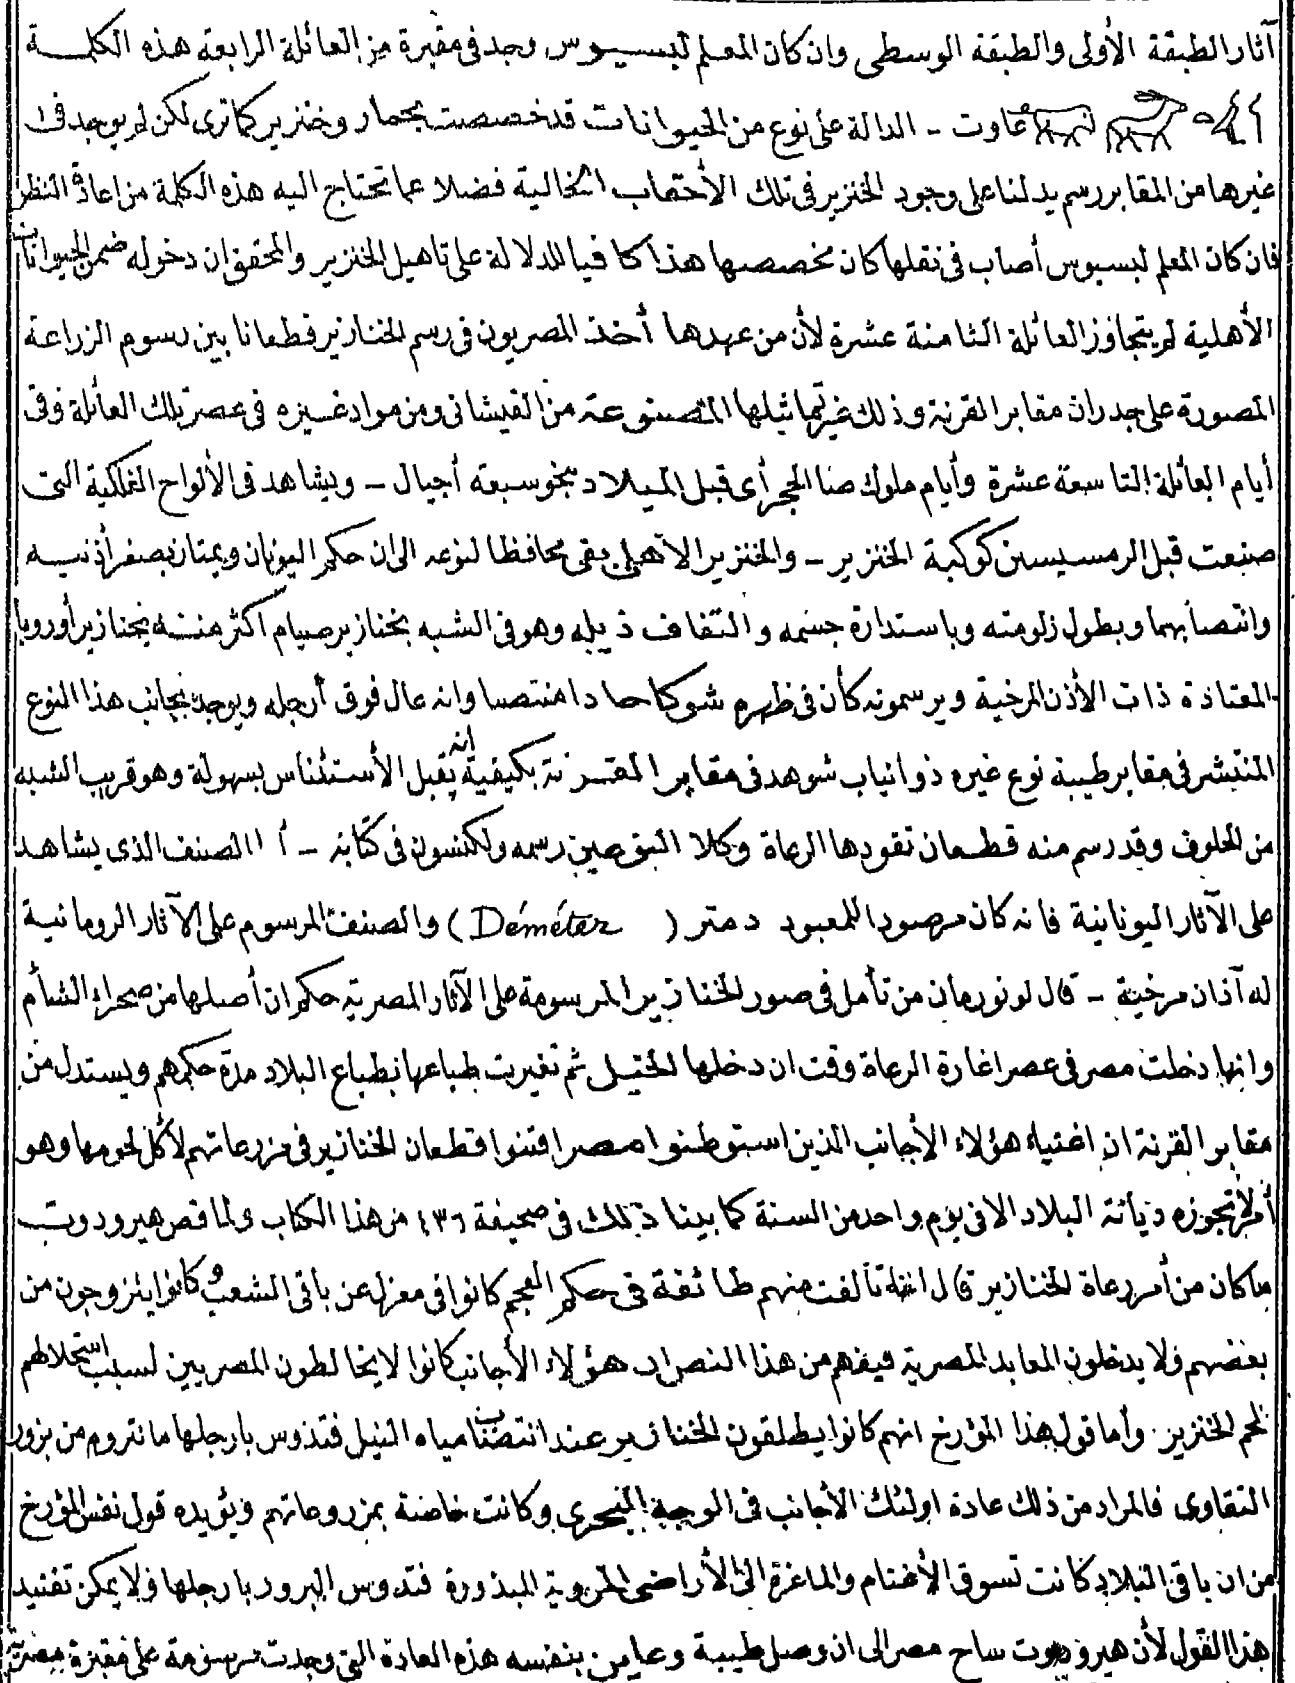 آثار الطبقة الأولى والطبقة الوسطى وان كان المعلم لبسيوس وجد في مقبرة من العائلة الرابعة هذه الكلمة
عاوت - الدالة على نوع من الحيوانات قد خصصت بحمار وخنزير كما ترى لكن لم يوجد في
غيرها من المقابر رسم يدلنا على وجود الخنزير في تلك الأحقاب الخالية فضلا عما تحتاج اليه هذه الكلمة من اعادة النظر
فان كان المعلم لبسيوس أصاب في نقلها كان مخصصها هذا كافيا للدلالة على تاهيل الخنزير والمحقق ان دخوله ضمن الحيوانات
الأهلية لم يتجاوز العائلة الثامنة عشرة لأن من عهدها أخذ المصريون في رسم الخنازير قطعانا بين رسوم الزراعة
المصورة على جدران مقابر القرنة وذلك غير تماثيلها المصنوعة من القيشاني ومن مواد غيره في عصر تلك العائلة وفي
أيام العائلة التاسعة عشرة وأيام ملوك صا الحجر أى قبل الميلاد بنحو سبعة أجيال - ويشاهد في الألواح الفلكية التى
صنعت قبل الرمسيسين كوكبة الخنزير - والخنزير الاهلى بقى محافظا لنوعه الى ان حكم اليونان ويمتاز بصغر أذنيه
وانتصابهما وبطول زلومته وباستدارة جسمه والتفاف ذيله وهو في الشبه بخنازير صيام اكثر منه بخنازير أوروبا
المعتادة ذات الأذن المرخية ويرسمونه كأن في ظهره شوكا حادا منتصبا وانه عال فوق أرجله ويوجد بجانب هذا النوع
المنتشر في مقابر طيبة نوع غيره ذو انياب شوهد في مقابر القرنة بكيفية انه يقبل الأستئناس بسهولة وهو قريب الشبه
من الحلوف وقد رسم منه قطعان تقودها الرعاة وكلا النوعين رسمه ولكنسون في كتابه - أ االصنف الذى يشاهد
على الآثار اليونانية فانه كان مرصودا للمعبود دمتر ( Déméter ) والصنف المرسوم على الآثار الرومانية
له آذان مرخية - قال لونورمان من تأمل في صور الخنازير المرسومة على الآثار المصرية حكم ان أصلها من صحراء الشأم
وانها دخلت مصر في عصر اغارة الرعاة وقت ان دخلها الخيل ثم تغيرت طباعها بطباع البلاد مدة حكمهم ويستدل من
مقابر القرنة ان اغنياء هؤلاء الأجانب الذين استوطنوا مصر اقتنوا قطعان الخنازير في مزرعاتهم لأكل لحومها وهو
أمر لا تجوزه ديانة البلاد الا في يوم واحد من السنة كما بينا ذلك في صحيفة ٤٣٦ من هذا الكتاب ولما قص هيرودوت
ما كان من أمر رعاة الخنازير قال انه تألفت منهم طائفة في حكم العجم كانوا في معزل عن باقى الشعب وكانوا يتزوجون من
بعضهم ولا يدخلون المعابد المصرية فيفهم من هذا النص ان هؤلاء الأجانب كانوا لا يخالطون المصريين لسبب استحلالهم
لحم الخنزير. وأما قول هذا المؤرخ انهم كانوا يطلقون الخنازير عند انتضاب مياه النيل فتدوس بارجلها ما نتروم من بزور
التقاوى فالمراد من ذلك عادة اولئك الأجانب في الوجه البحرى وكانت خاصة بمزروعاتهم ويؤيده قول نفس المؤرخ
من ان باقى البلاد كانت تسوق الأغنام والماعزة الى الأراضى المروية المبذورة فتدوس البزور بارجلها ولا يمكن تفنيد
هذا القول لأن هيرودوت ساح مصر الى ان وصل طيبة وعاين بنفسه هذه العادة التى وجدت مرسومة على مقبرة مصرية